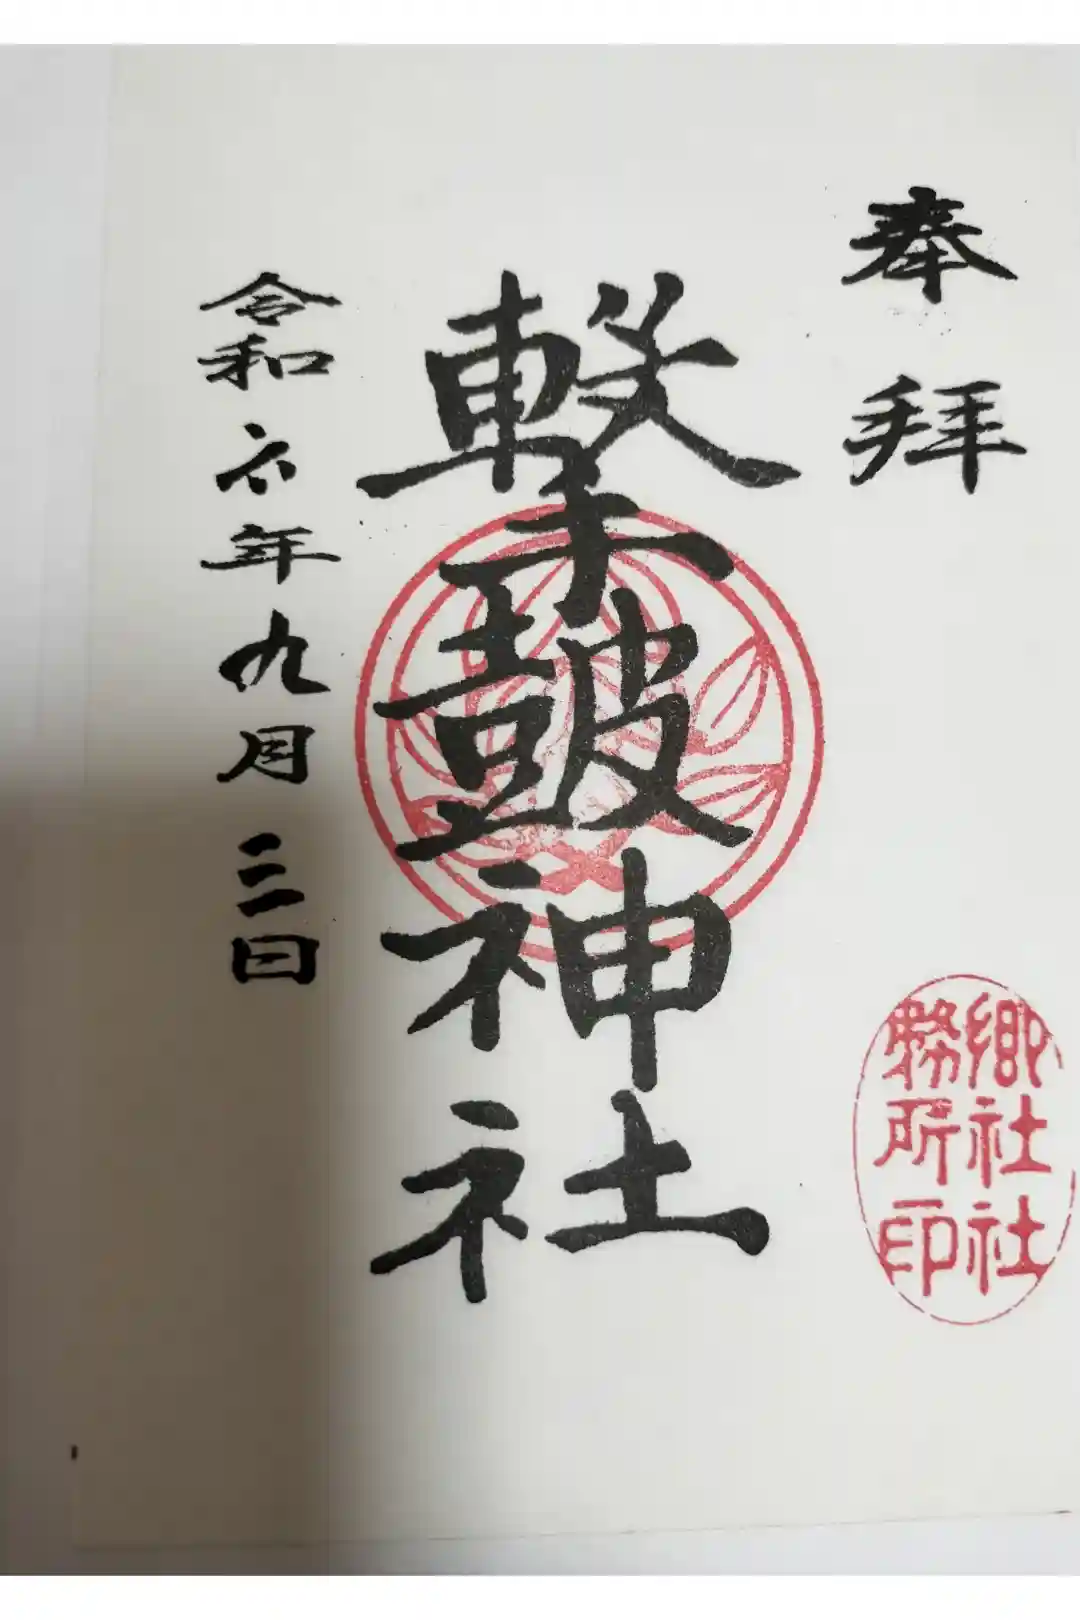 奉拝
撃鼓神社
令和六年九月三日
郷社社
務所印